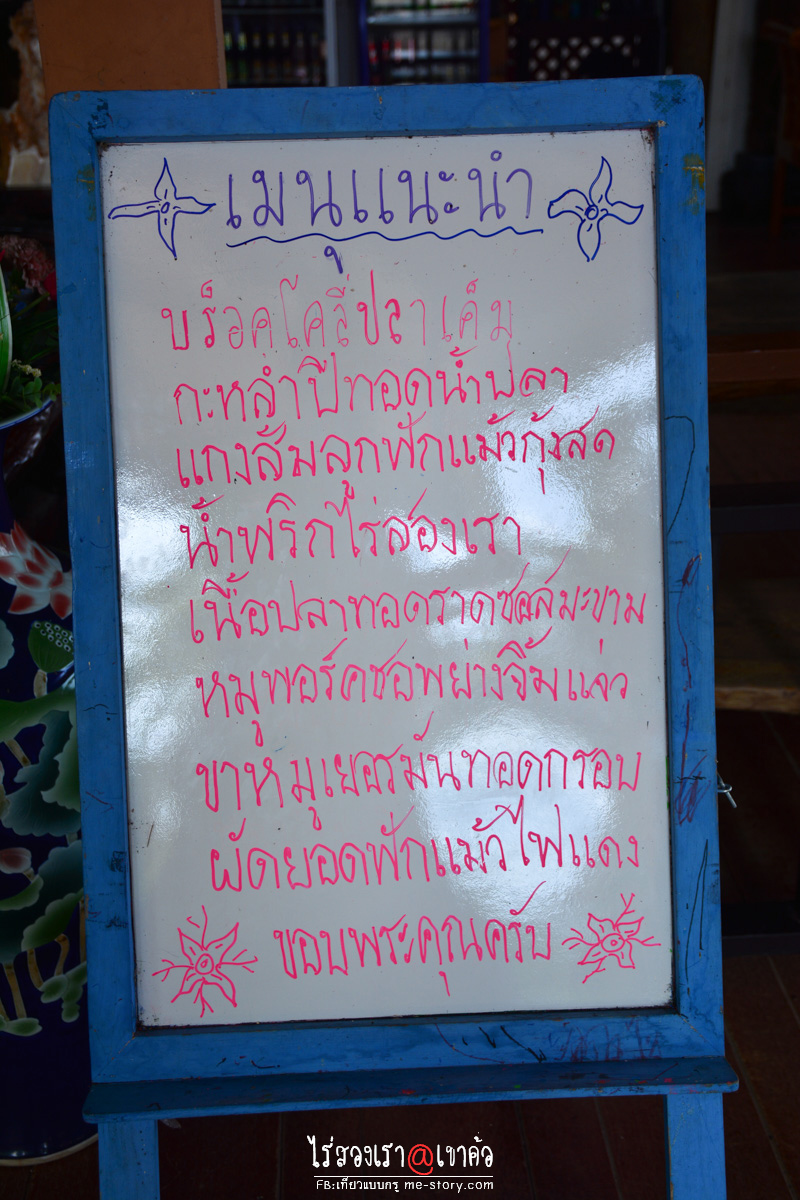 เมนูแนะนำ
บร็อคโคลี่ปลาเค็ม
กะหล่ำปีทอดน้ำปลา
แกงส้มลูกฟักแม้วกุ้งสด
น้ำพริกไร่สองเรา
เนื้อปลาทอดราดซอสมะขาม
หมูพอร์คชอพย่างจิ้มแจ่ว
ขาหมูเยอรมันทอดกรอบ
ผัดยอดฟักแม้วไฟแดง
ขอบพระคุณครับ
ไร่สองเรา@เขาค้อ
FB:เที่ยวแบบกรู me-story.com